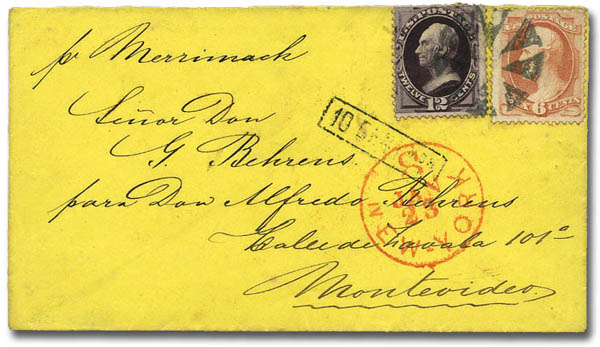 pr Merrimack
Señor Don
G. Behrens.
para Don Alfredo Behrens
Calle de Zavala 101a
Montevideo
U.S. POSTAGE
TWELVE 12 CENTS
POSTAGE
SIX 6 CENTS
10
NEW YORK
23